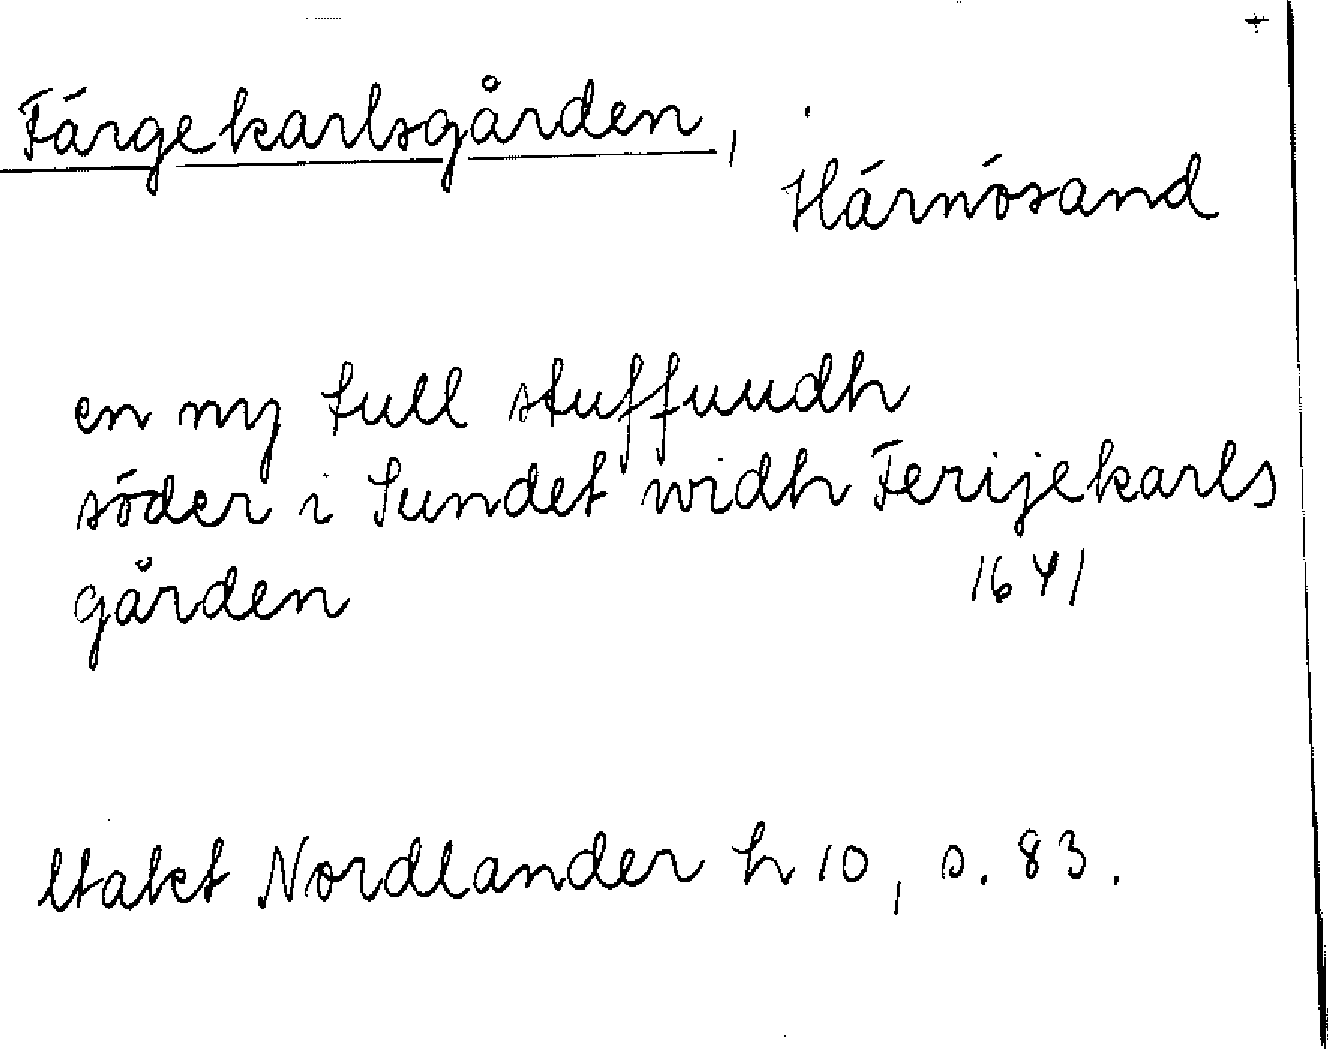 Färgekarlsgården,
Härnösand
en ny tull stuffuudh
söder i Sundet widh Ferijekarls
gården
1641
Utakt Nordlander h 10, s. 83.